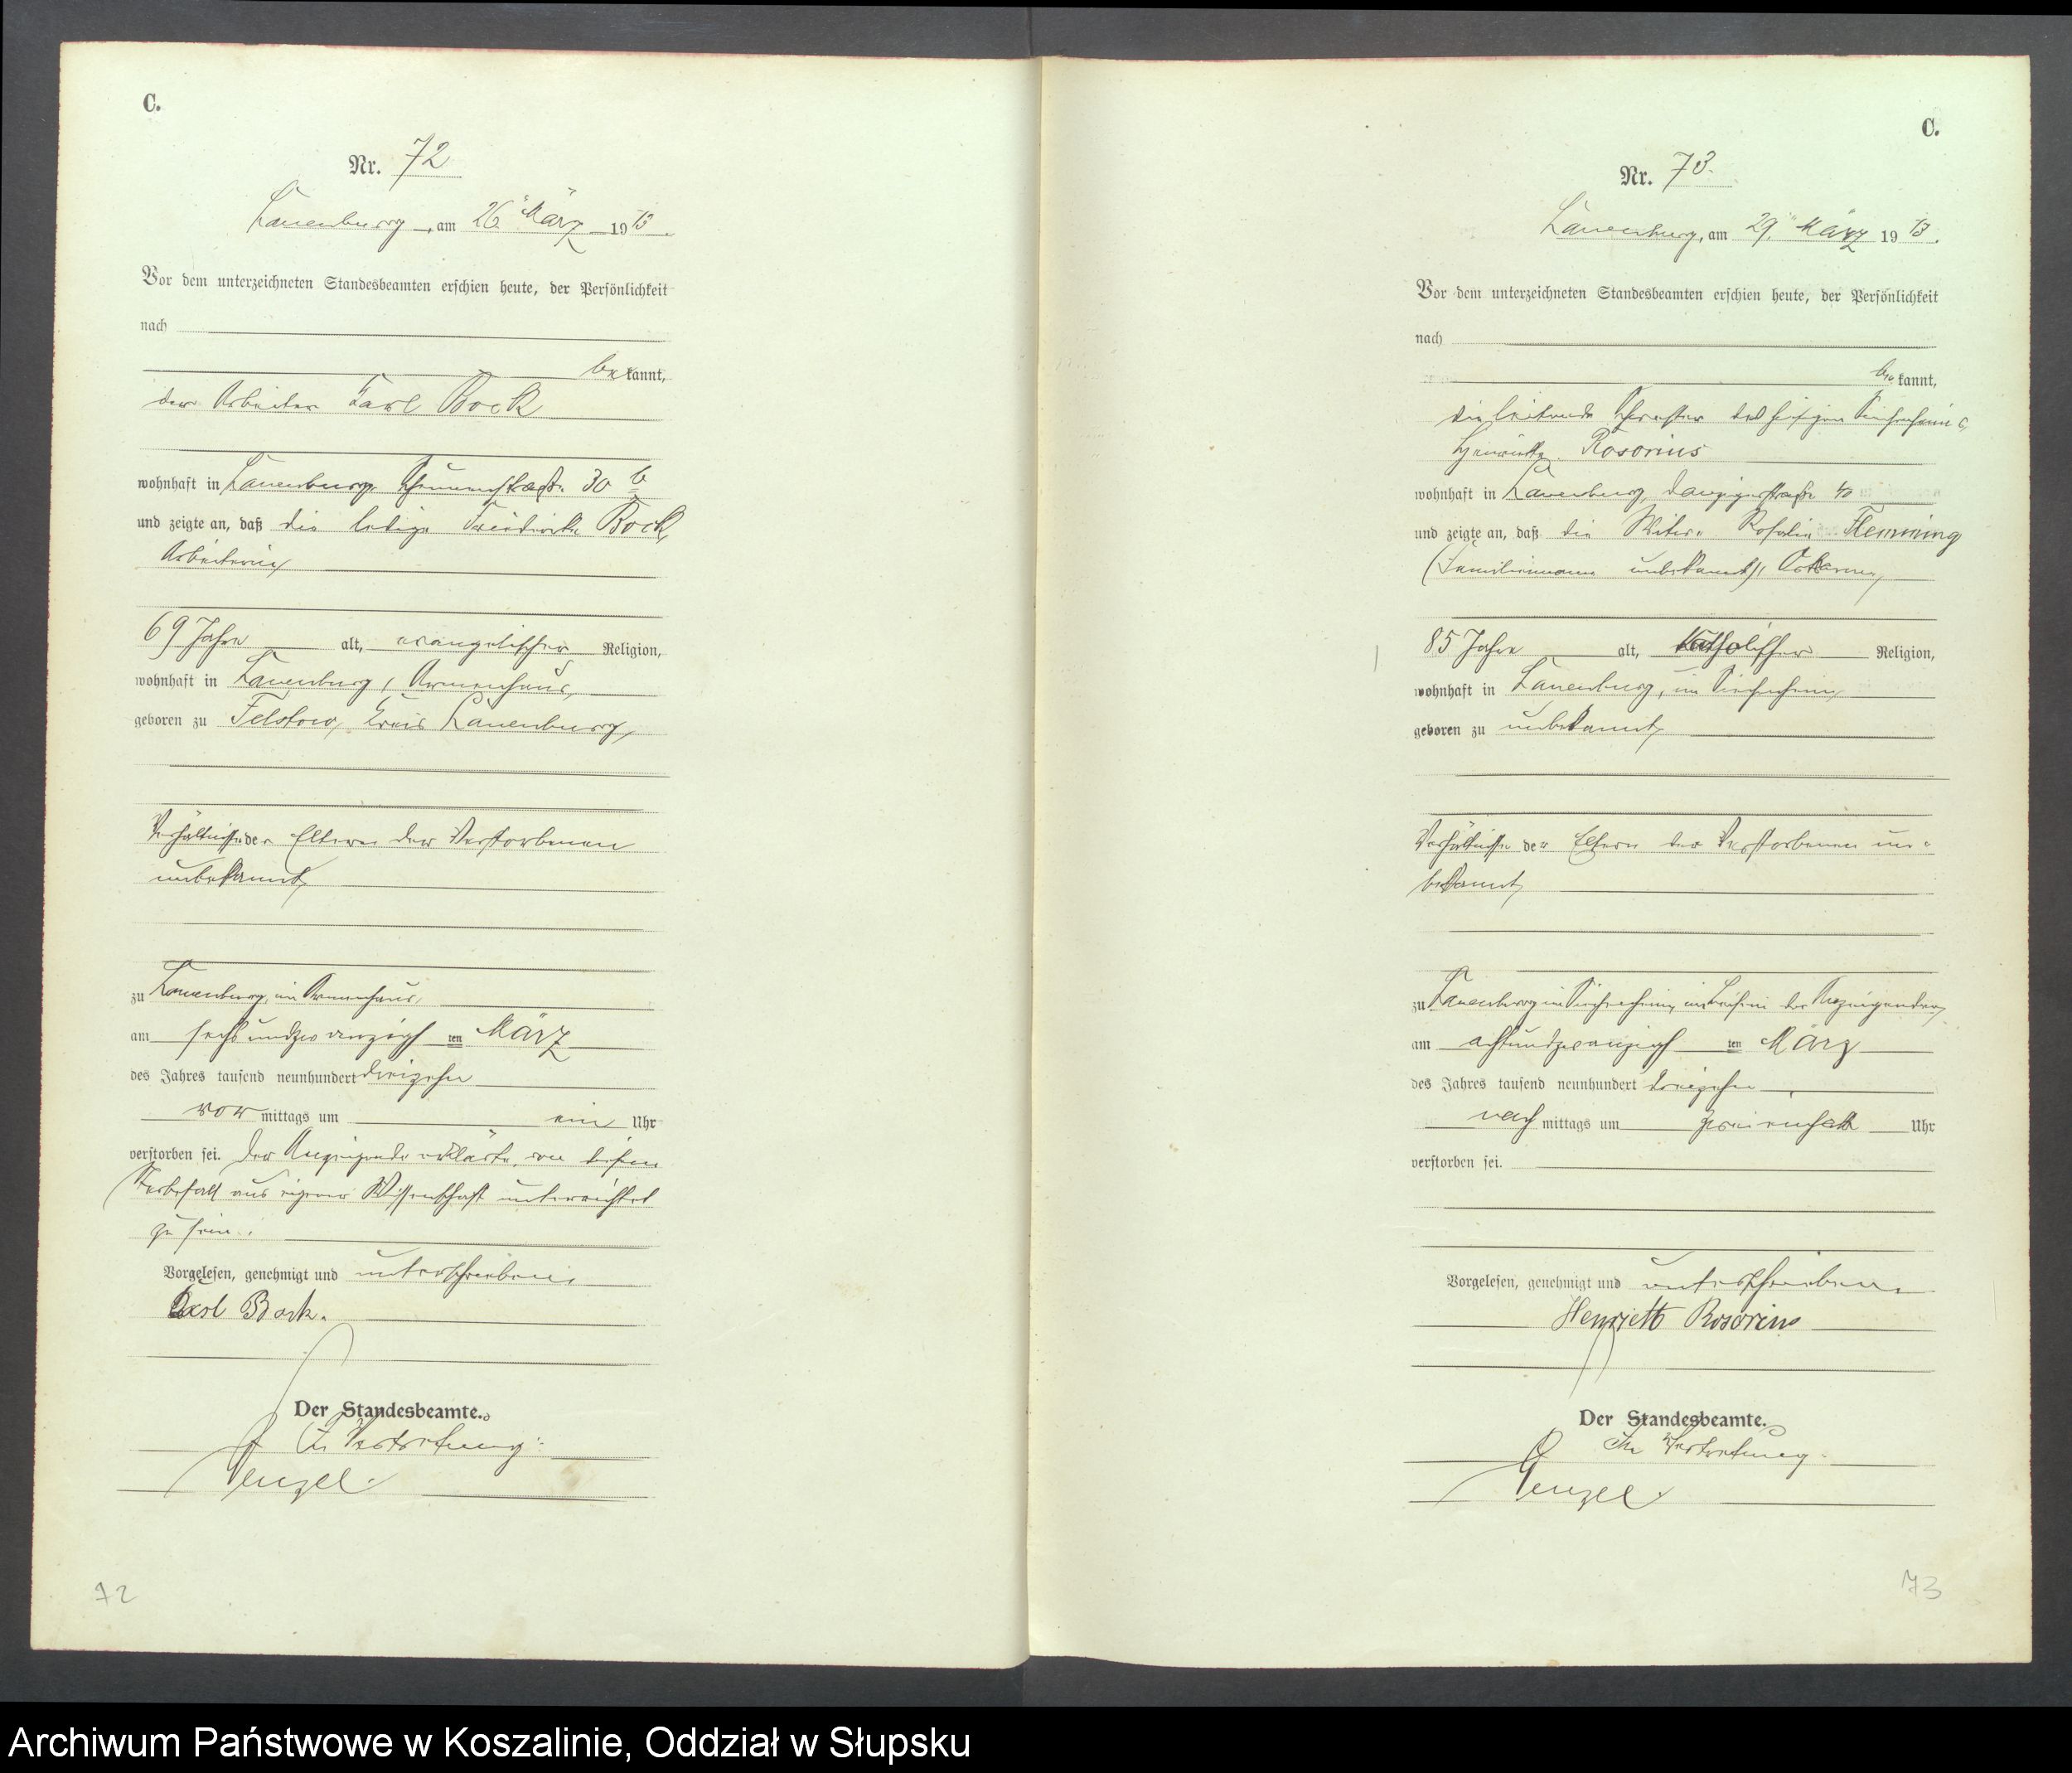 C.
Nr. 72
Lauenburg, am 26. März 1913.
Vor dem unterzeichneten Standesbeamten erschien heute, der Persönlichkeit
nach
bekannt,
der Arbeiter Karl Bock
wohnhaft in Lauenburg 30 b
und zeigte an, daß die ledige Friederike Bock,
Arbeiterin,
69 Jahre alt, evangelischer Religion,
wohnhaft in Lauenburg, Armenhaus,
geboren zu Felstow, Kreis Lauenburg,
Verhältnisse der Eltern der Verstorbenen
unbekannt,
zu Lauenburg, im Armenhaus,
am sechsundzwanzigsten März
des Jahres tausend neunhundert dreizehn
vormittags um ein Uhr
verstorben sei. Der Anzeigende erklärte, von diesem
Sterbefall aus eigener Wissenschaft unterrichtet
zu sein.
Vorgelesen, genehmigt und unterschrieben
Karl Bock.
Der Standesbeamte.
In Vertretung:
72
C.
Nr. 73.
Lauenburg, am 29. März 1913.
Vor dem unterzeichneten Standesbeamten erschien heute, der Persönlichkeit
nach
bekannt,
die leitende Schwester des hiesigen Siechenheims,
Henriette Rosorius
wohnhaft in Lauenburg Danzigerstraße
und zeigte an, daß die Witwe Rosalie Flemming
(Familienname unbekannt), Ortsarme,
85 Jahre alt, katholischer Religion,
wohnhaft in Lauenburg, im Siechenheim,
geboren zu unbekannt,
Verhältnisse der Eltern der Verstorbenen un-
bekannt,
zu Lauenburg im Siechenheim, im Beisein der Anzeigenden,
am achtundzwanzigsten März
des Jahres tausend neunhundert dreizehn
nachmittags um zweieinhalb Uhr
verstorben sei.
Vorgelesen, genehmigt und unterschrieben
Henriette Rosorius
Der Standesbeamte.
In Vertretung.
73
Archiwum Państwowe w Koszalinie, Oddział w Słupsku